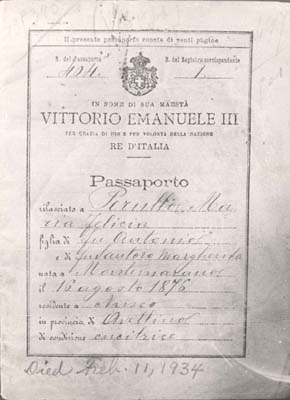 Il presente passaporto consta di venti pagine
N. del Passaporto N. del Registro corrispondente
404 1
IN NOME DI SUA MAESTÀ
VITTORIO EMANUELE III
PER GRAZIA DI DIO E PER VOLONTÀ DELLA NAZIONE
RE D'ITALIA
Passaporto
rilasciato a Perullo Ma
ria Felicia
figlia di fu Antonio
e di Margherita
nata a Montemarano
il 16 agosto 1876
residente a
in provincia di Avellino
di condizione cucitrice
Died Feb. 11, 1934